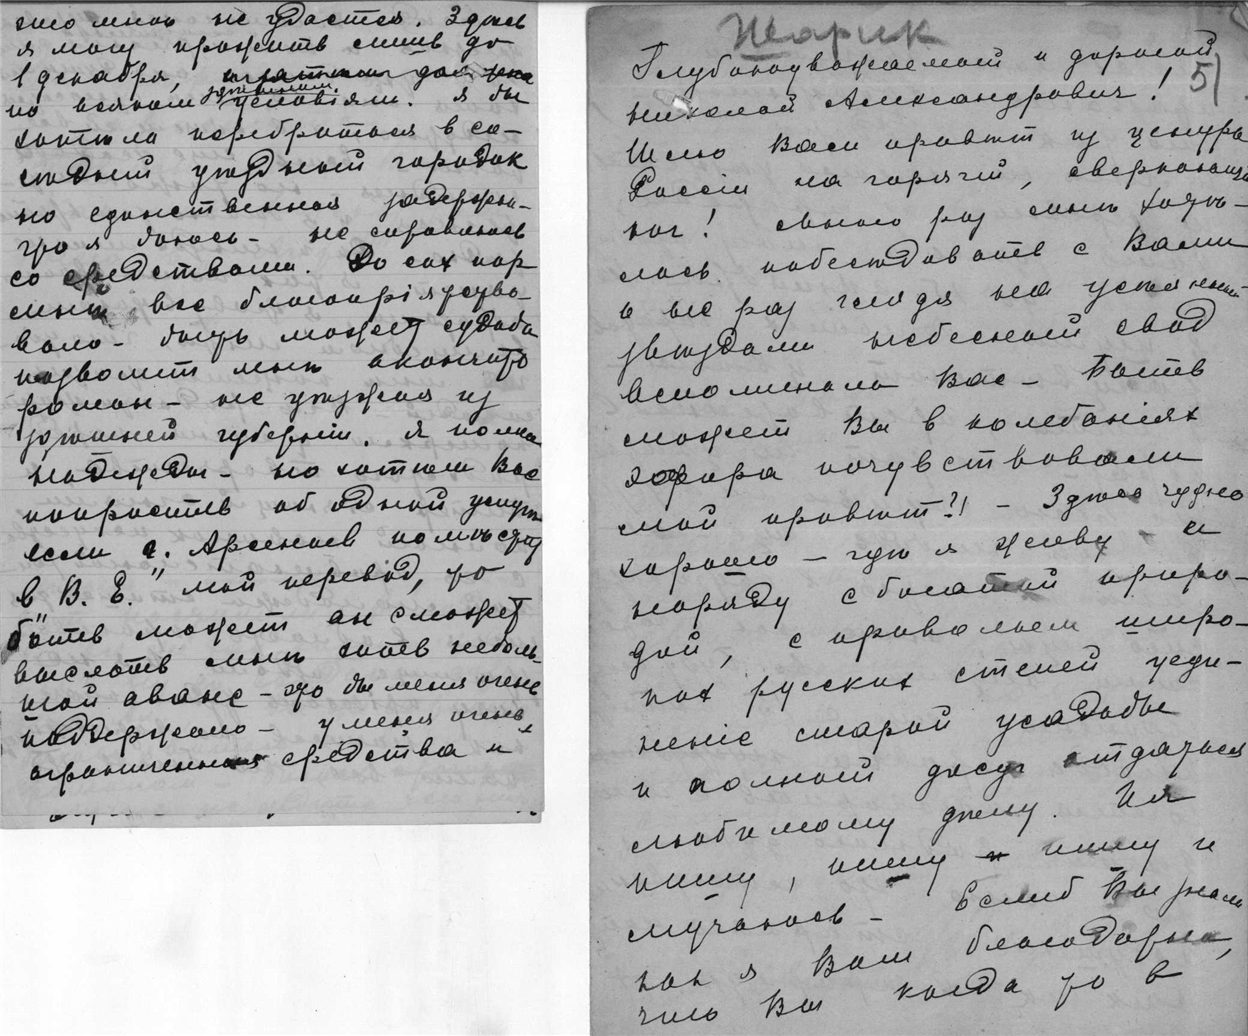 что мнѣ не удастся. Здѣсь
я могу прожить лишь до
1 декабря,
по всяким условіям. Я бы
здѣшним
хотѣла перебраться в со-
сѣдній уѣздный городок
но единственная задержка
что я боюсь – не справлюсь
со средствами. До сих пор
мнѣ все благопріятство-
вало – быть может судьба
позволит мнѣ окончить
роман – не уѣзжая из
здѣшней губерніи. Я полна
надежды – но хотѣла Вас
попросить об одной услугѣ
если г. Арсеньев помѣстит
в „В. Е." мой перевод, то
быть может он сможет
выслать мнѣ хоть неболь-
шой аванс – что бы меня очень
поддержало – у меня очень
ограниченныя средства и
Шарик
5)
Глубокоуважаемый и дорогой
Николай Александрович!
Шлю Вам привѣт из центра
Россіи на горячій, сверкающій
юг! Много раз мнѣ хотѣ-
лось побесѣдовать с Вами
и не раз глядя на усѣянный
звѣздами небесный свод
вспоминала Вас – Быть
может Вы в колебаніях
эфира почувствовали
мой привѣт?! – Здѣсь чудно
хорошо – гдѣ я живу и
наряду с богатой приро-
дой, с привольем широ-
ких русских степей уеди-
неніе старой усадьбы
и полный досуг отдаться
любимому дѣлу. Ия
пишу, пишу – пишу и
мучаюсь – Еслиб Вы знали
как я Вам благодарна,
что Вы когда то в